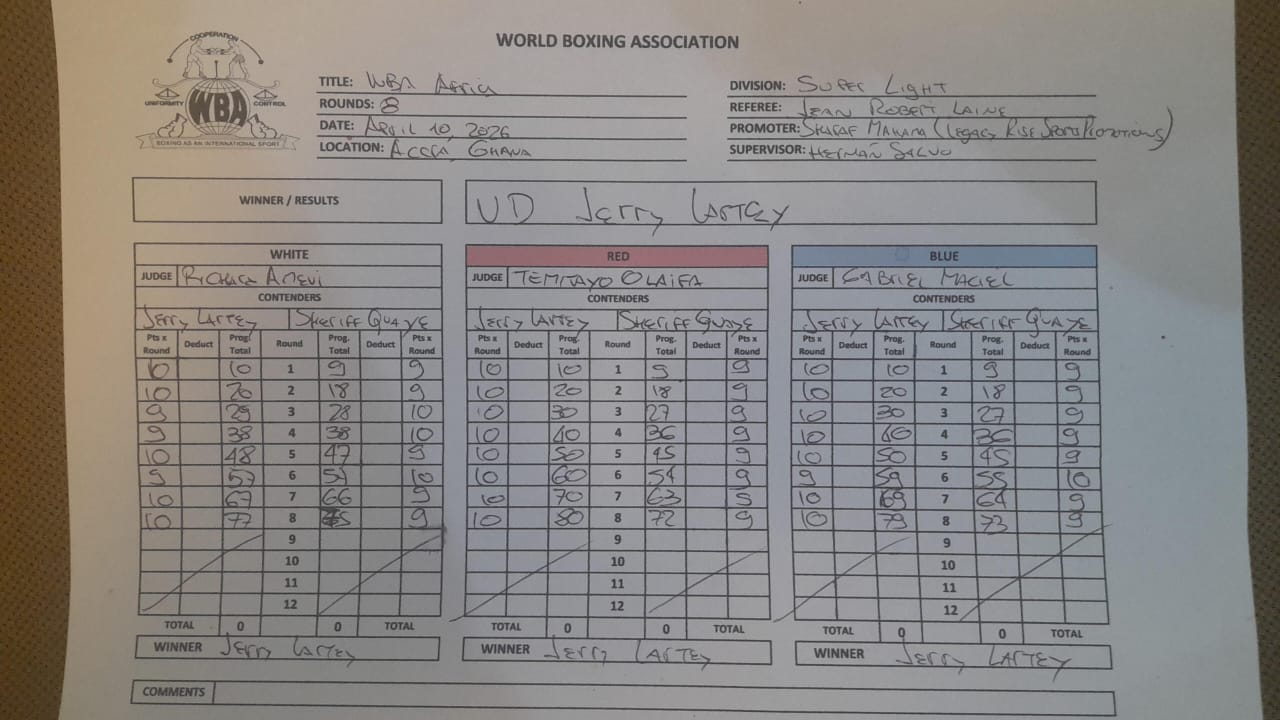 COOPERATION
UNIFORMITY WBA CONTROL
BOXING AS AN INTERNATIONAL SPORT
WORLD BOXING ASSOCIATION
TITLE: WBA Africa
ROUNDS: 8
DATE: April 10, 2026
LOCATION: Accra, Ghana
DIVISION: Super Light
REFEREE: Jean Robert Laine
PROMOTER: Sharaf Mahama (Legacy Rise Sports Promotions)
SUPERVISOR: Hernan Salvo
WINNER / RESULTS UD Jerry Lartey
WHITE
JUDGE Richard Amevi
CONTENDERS
Jerry Lartey Sheriff Quaye
Pts x Round Deduct Prog. Total Round Prog. Total Deduct Pts x Round
10 10 1 9 9
10 20 2 18 9
9 29 3 28 10
9 38 4 38 10
10 48 5 47 9
9 57 6 57 10
10 67 7 66 9
10 77 8 75 9
9
10
11
12
TOTAL 0 0 TOTAL
WINNER Jerry Lartey
RED
JUDGE Temitayo Olaifa
CONTENDERS
Jerry Lartey Sheriff Quaye
Pts x Round Deduct Prog. Total Round Prog. Total Deduct Pts x Round
10 10 1 9 9
10 20 2 18 9
10 30 3 27 9
10 40 4 36 9
10 50 5 45 9
10 60 6 54 9
10 70 7 63 9
10 80 8 72 9
9
10
11
12
TOTAL 0 0 TOTAL
WINNER Jerry Lartey
BLUE
JUDGE Gabriel Maciel
CONTENDERS
Jerry Lartey Sheriff Quaye
Pts x Round Deduct Prog. Total Round Prog. Total Deduct Pts x Round
10 10 1 9 9
10 20 2 18 9
10 30 3 27 9
10 40 4 36 9
10 50 5 45 9
9 59 6 55 10
10 69 7 64 9
10 79 8 73 9
9
10
11
12
TOTAL 0 0 TOTAL
WINNER Jerry Lartey
COMMENTS